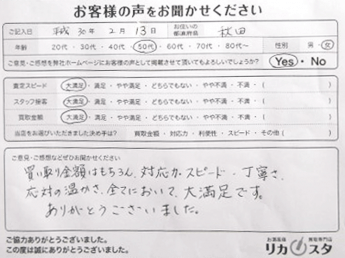 お客様の声をお聞かせください
ご記入日 平成 30年 2月 13日 お住いの都道府県 秋田
年齢 20代・30代・40代・50代・60代・70代・80代〜 性別 男・女
ご意見・ご感想を弊社ホームページにお客様の声として掲載させて頂いてもよろしいでしょうか? Yes・No
査定スピード 大満足・満足・やや満足・どちらでもない・やや不満・不満 ( )
スタッフ接客 大満足・満足・やや満足・どちらでもない・やや不満・不満 ( )
買取金額 大満足・満足・やや満足・どちらでもない・やや不満・不満 ( )
当店をお選びいただきました決め手は? 買取金額・対応力・利便性・スピード・その他 ( )
ご意見・ご感想などぜひお聞かせください
買い取り金額はもちろん、対応力・スピード・丁寧さ、
応対の温かさ、全てにおいて、大満足です。
ありがとうございました。
ご協力ありがとうございました。
この度は誠にありがとうございました。
お酒買取専門店
リカスタ